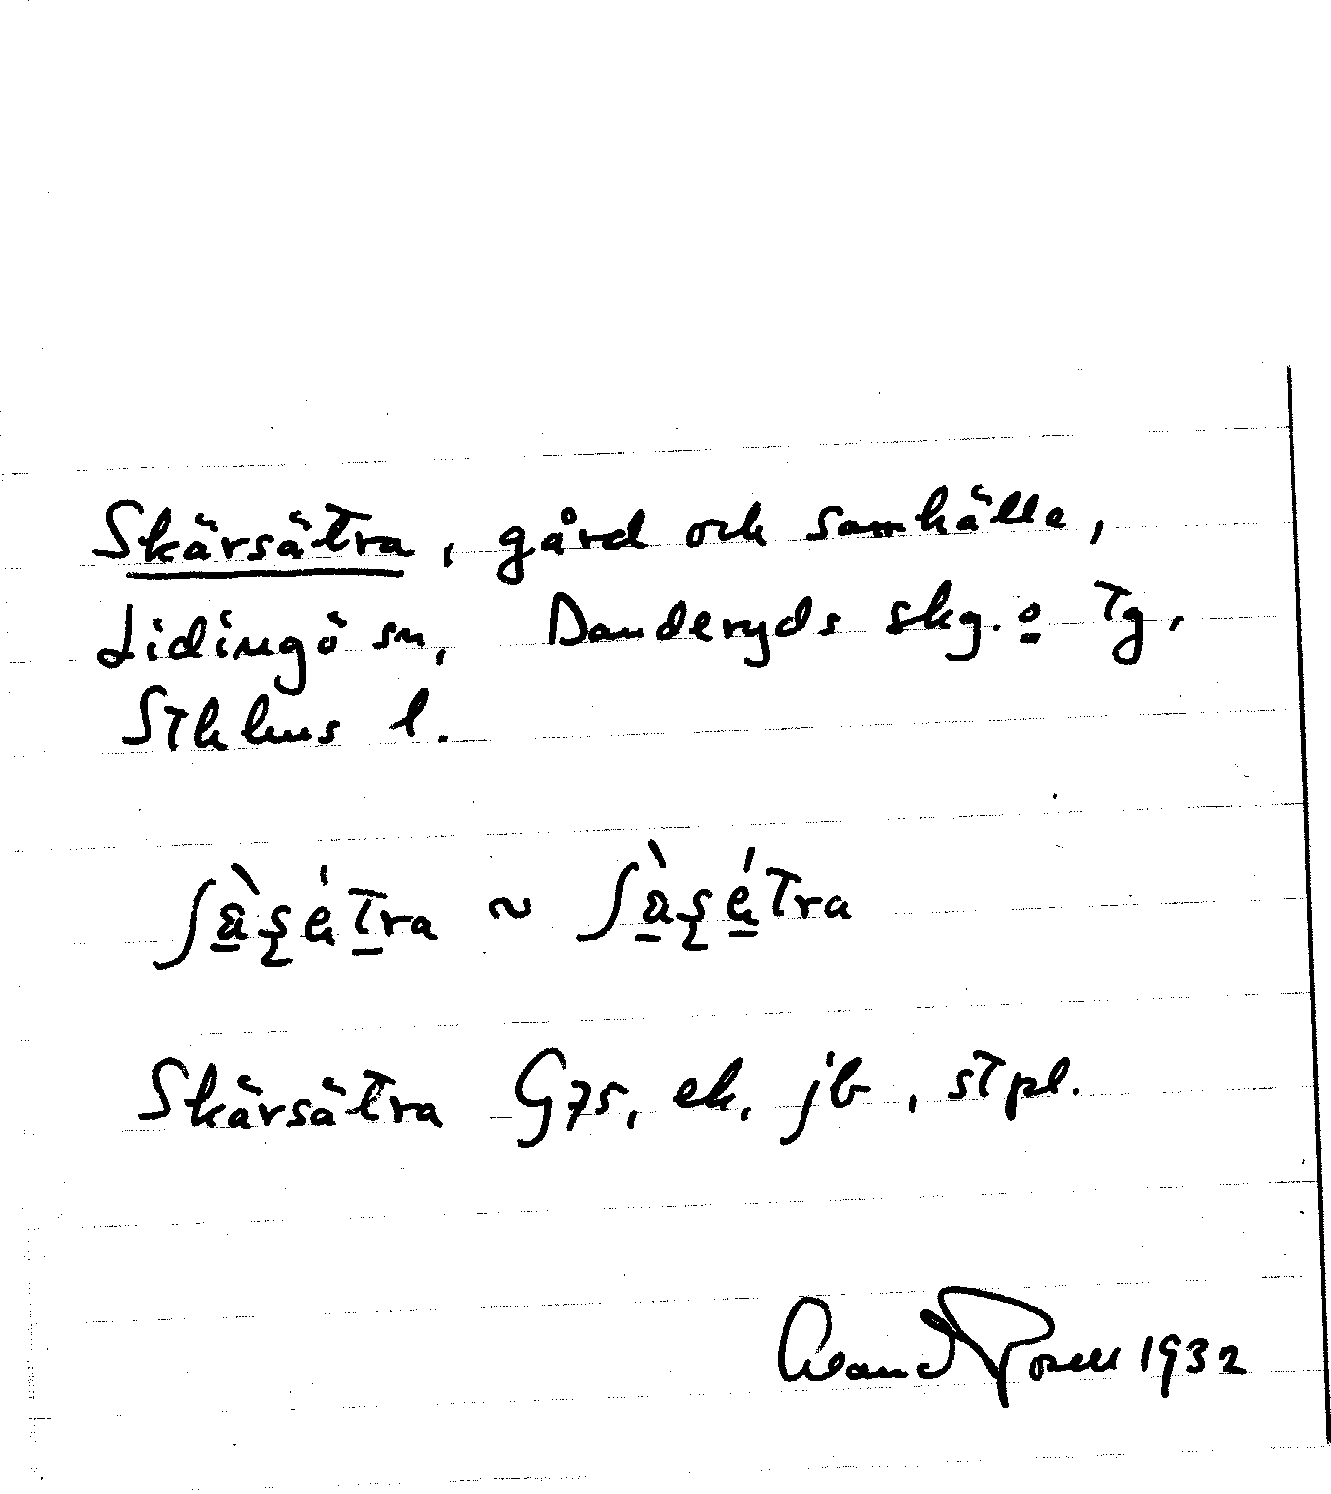 Skärsätra, gård och samhälle,
Lidingö sn, Danderyds skg. o Tg,
Sthlms l.
ʃàşétra ~ ʃàşétra
Skärsätra G75, ek, jb, stpl.
1932